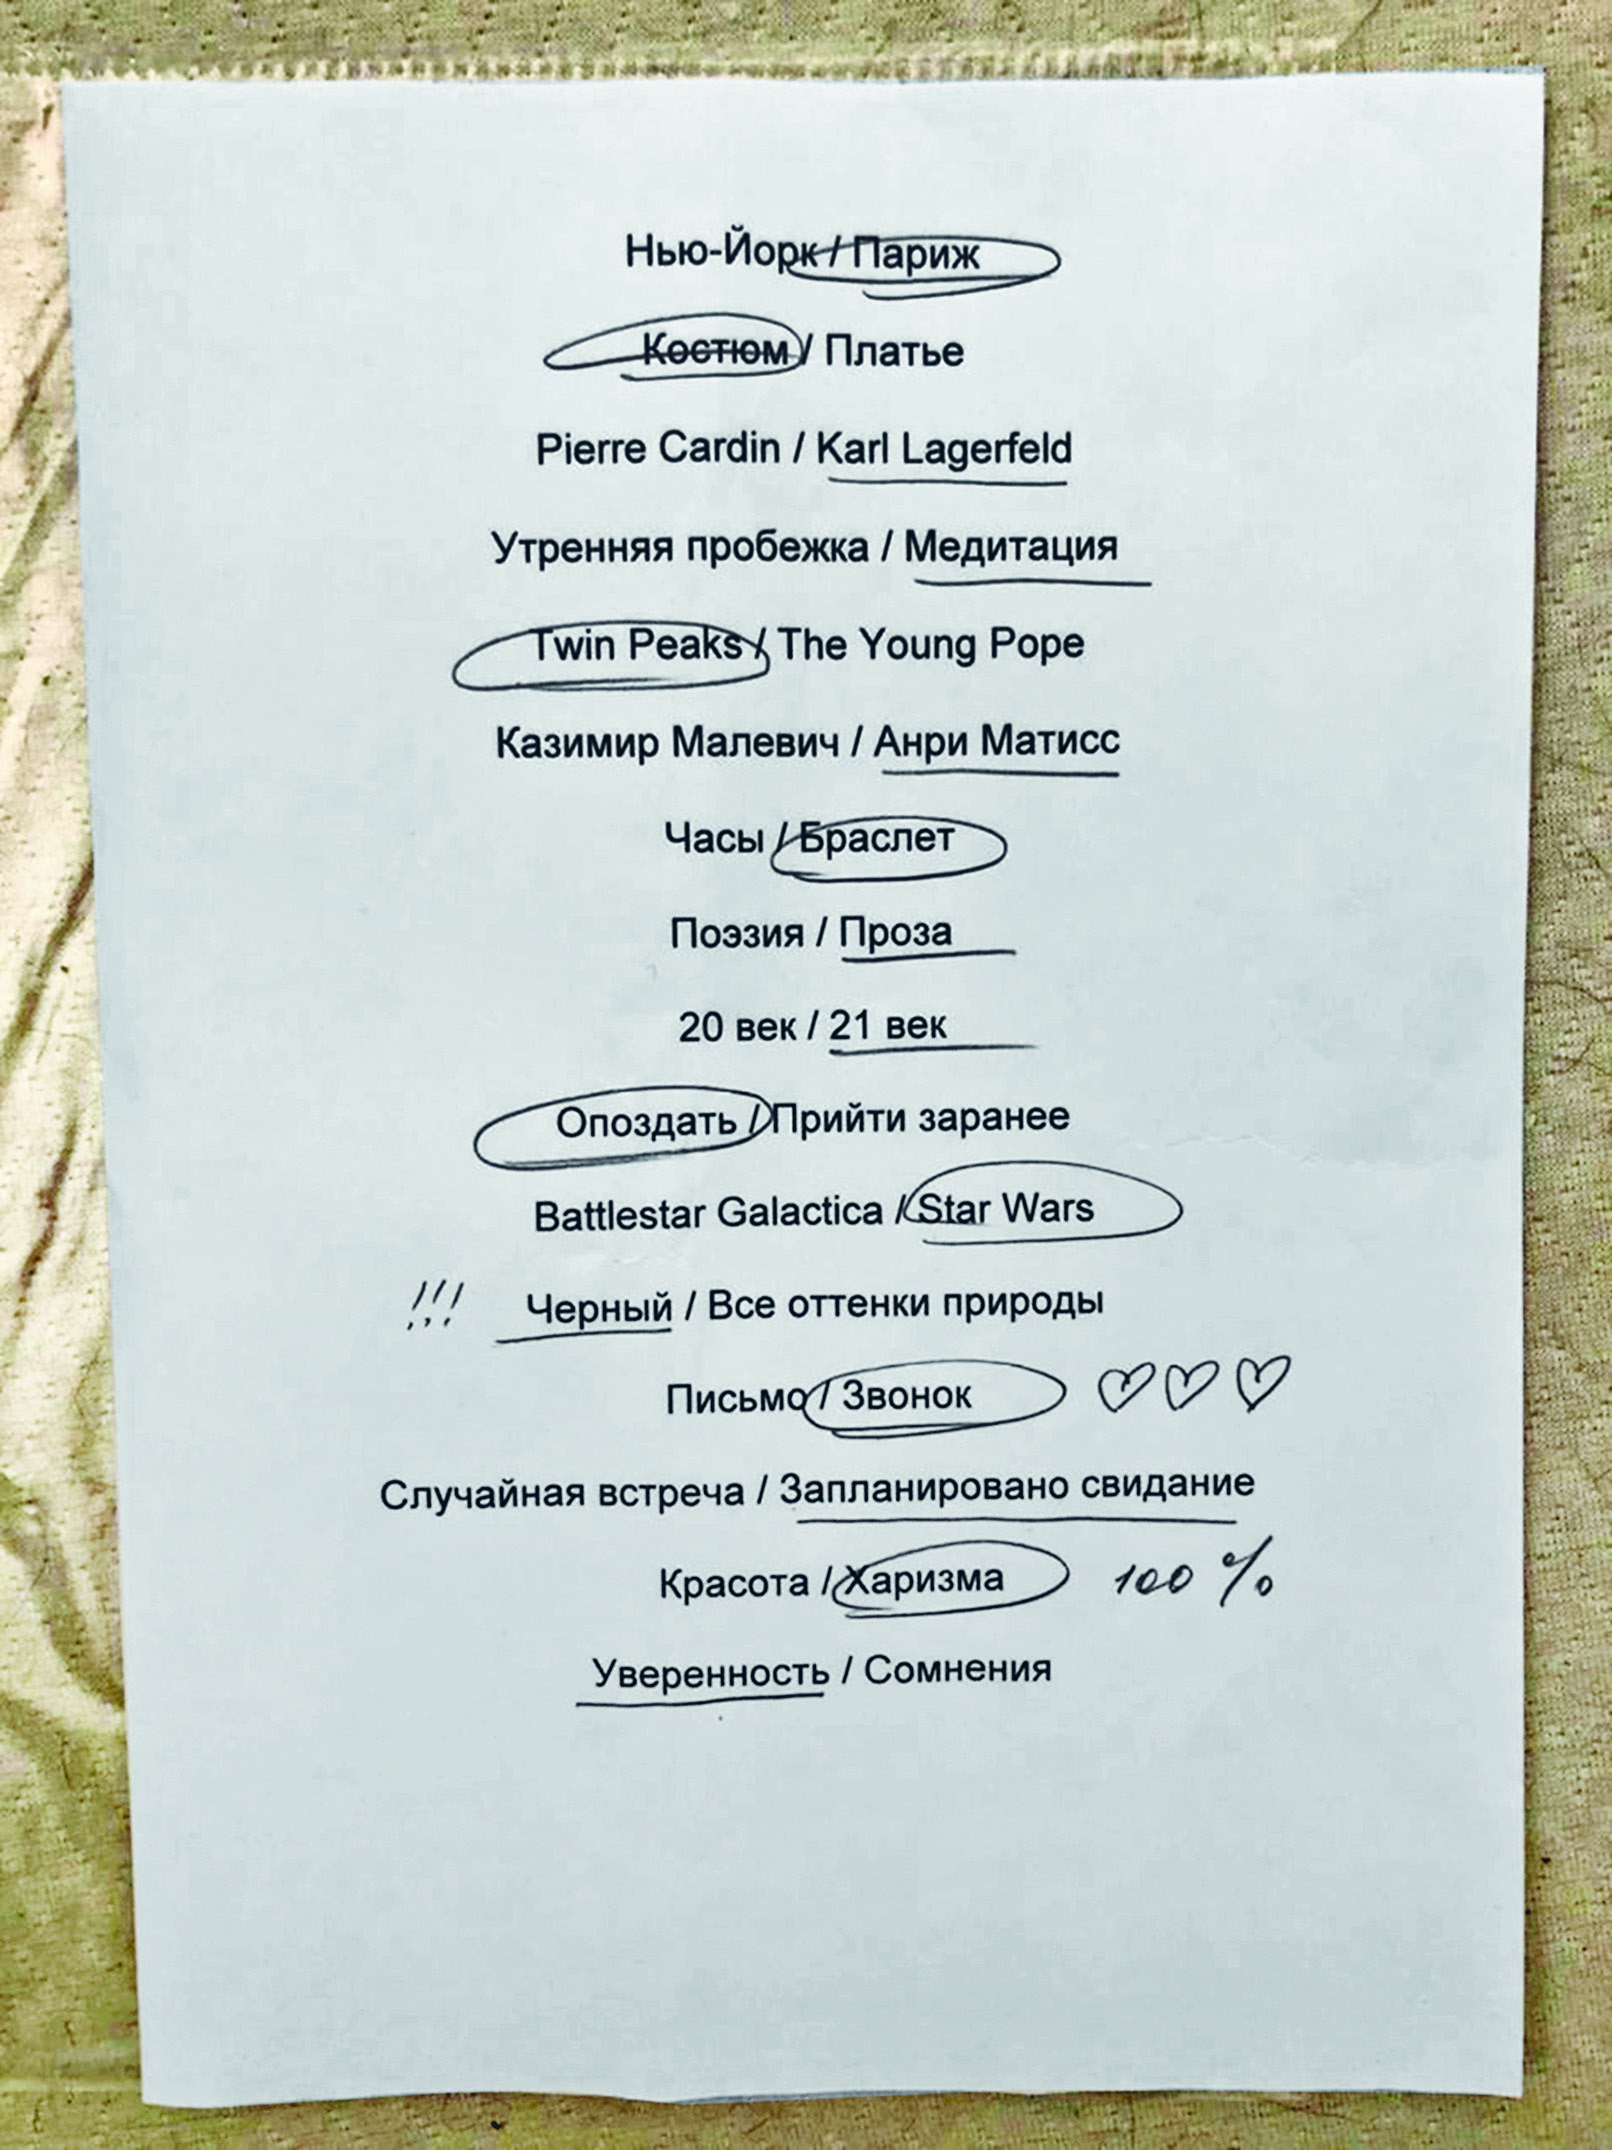 Нью-Йорк / Париж
Костюм / Платье
Pierre Cardin / Karl Lagerfeld
Утренняя пробежка / Медитация
Twin Peaks / The Young Pope
Казимир Малевич / Анри Матисс
Часы / Браслет
Поэзия / Проза
20 век / 21 век
Опоздать / Прийти заранее
Battlestar Galactica / Star Wars
!!! Черный / Все оттенки природы
Письмо / Звонок ♡ ♡ ♡
Случайная встреча / Запланировано свидание
Красота / Харизма 100 %
Уверенность / Сомнения